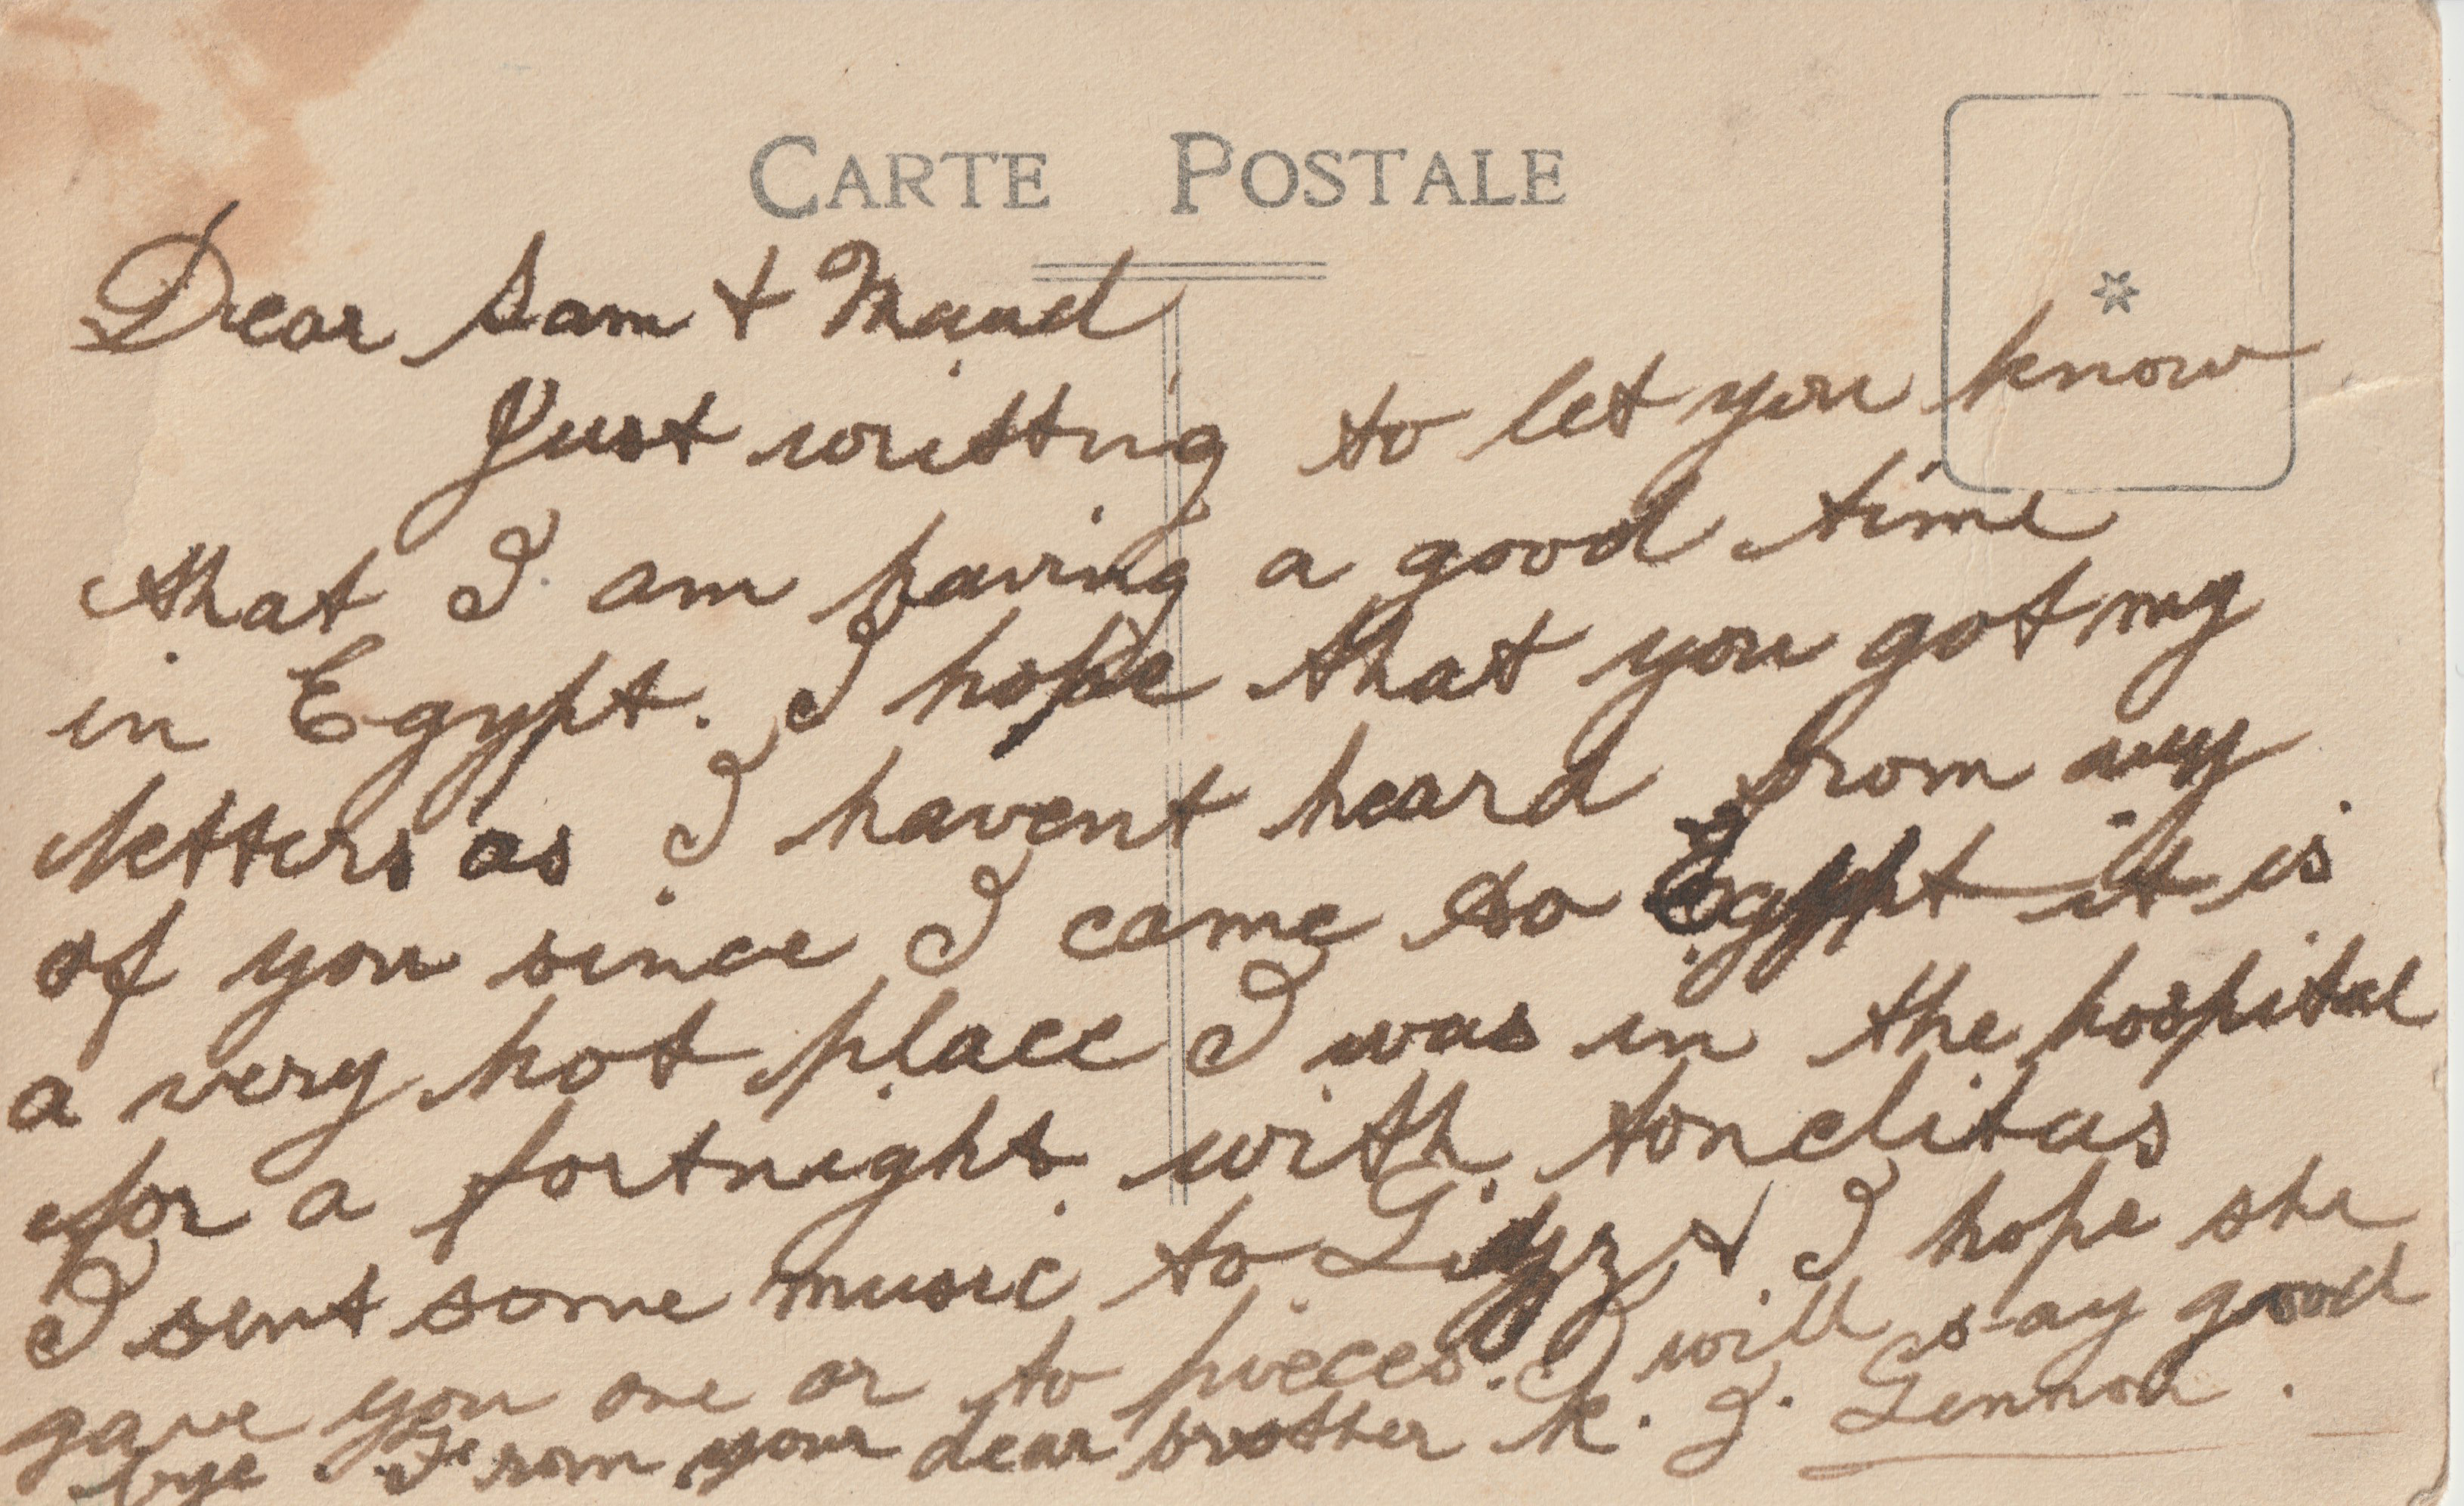 CARTE POSTALE
Dear Sam & Maud
Just writting to let you know
that I am having a good time
in Egypt. I hope that you got my
letters as I havent heard from any
of you since I came to Egypt it is
a very hot place I was in the hospital
for a fortnight with tonclitus
I sent some music to & I hope she
gave you one or to pieces. I will say good
bye. From your dear brother J. Lennon.